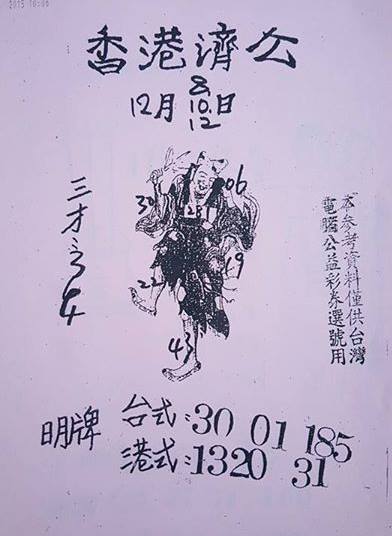 2015 10:06
香港濟公
12月 8. 10. 12 日
三才
06
30
28
19
22
43
本參考資料僅供台灣
電腦公益彩券選號用
明牌
台式:30 01 185
港式:1320 31